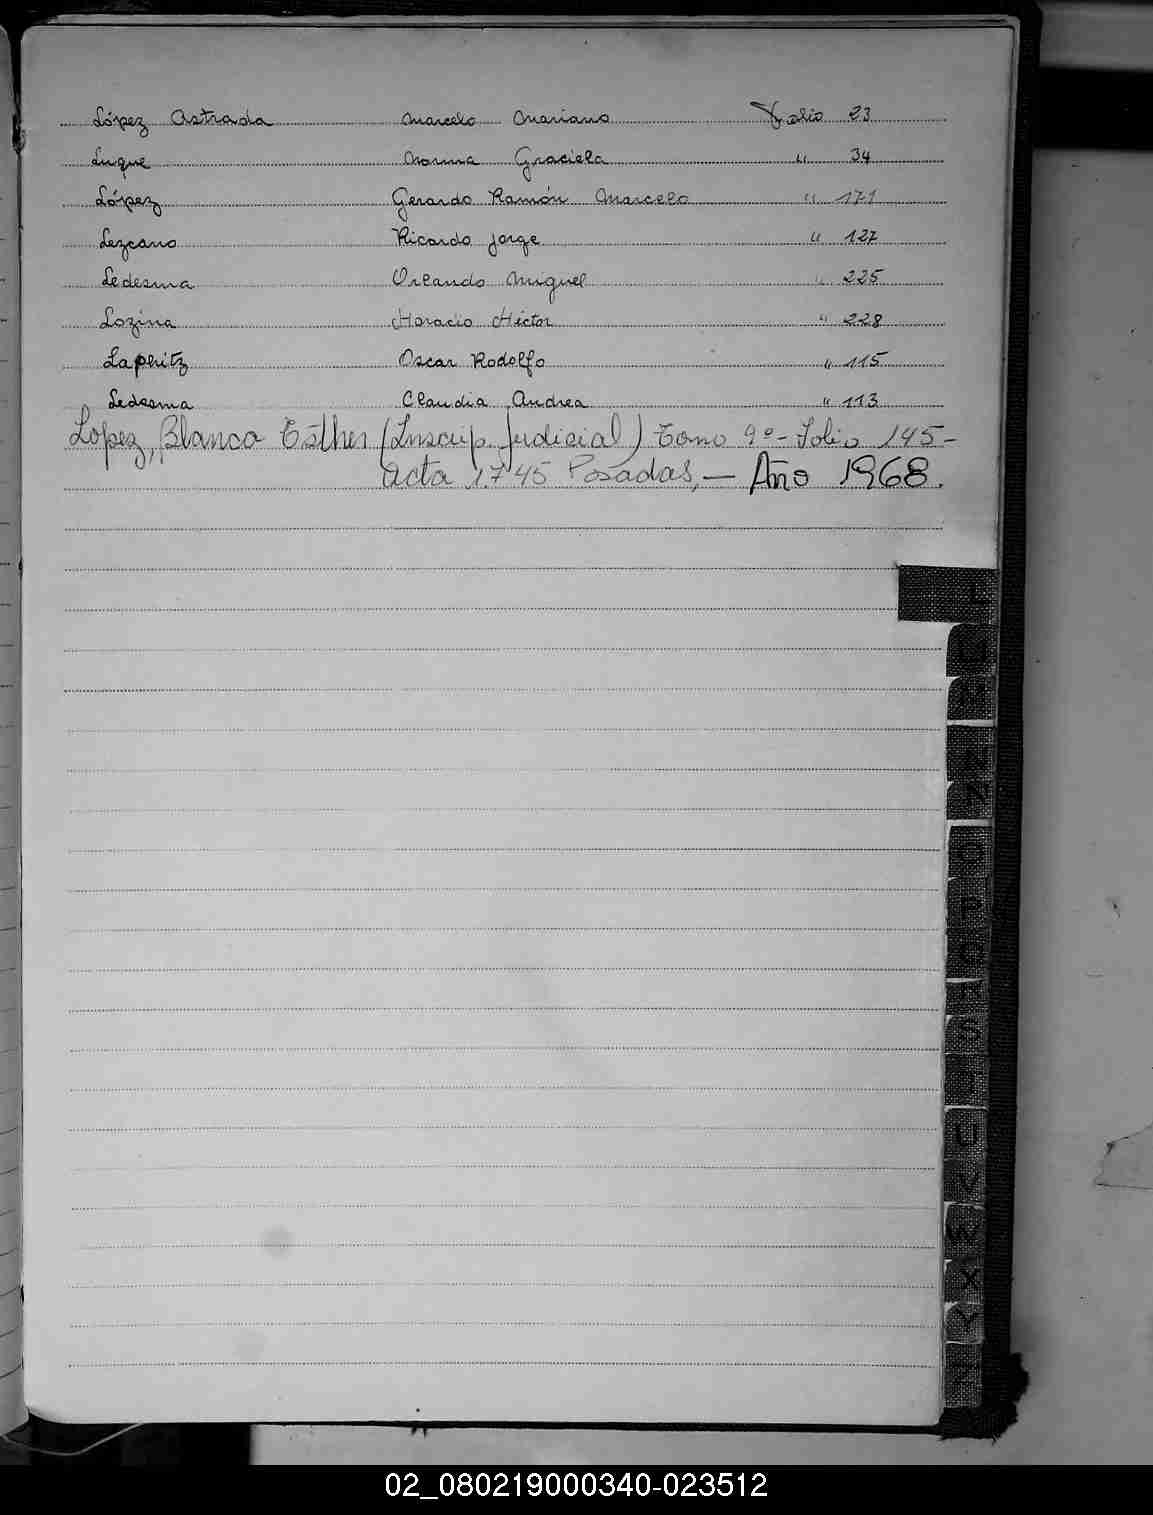 López Astrada Marcelo Mariano Folio 23
Luque Norma Graciela " 34
López Gerardo Ramón Marcelo " 171
Lezcano Ricardo Jorge " 127
Ledesma Orlando Miguel " 225
Lozina Horacio Héctor " 228
Lapkitz Oscar Rodolfo " 115
Ledesma Claudia Andrea " 113
Lopez, Blanca Esther (Inscrip. Judicial) Tomo 9º - Folio 145 -
Acta 1.745 Posadas, — Año 1968.
L
P
S
U
V
W
X
Y
02_080219000340-023512